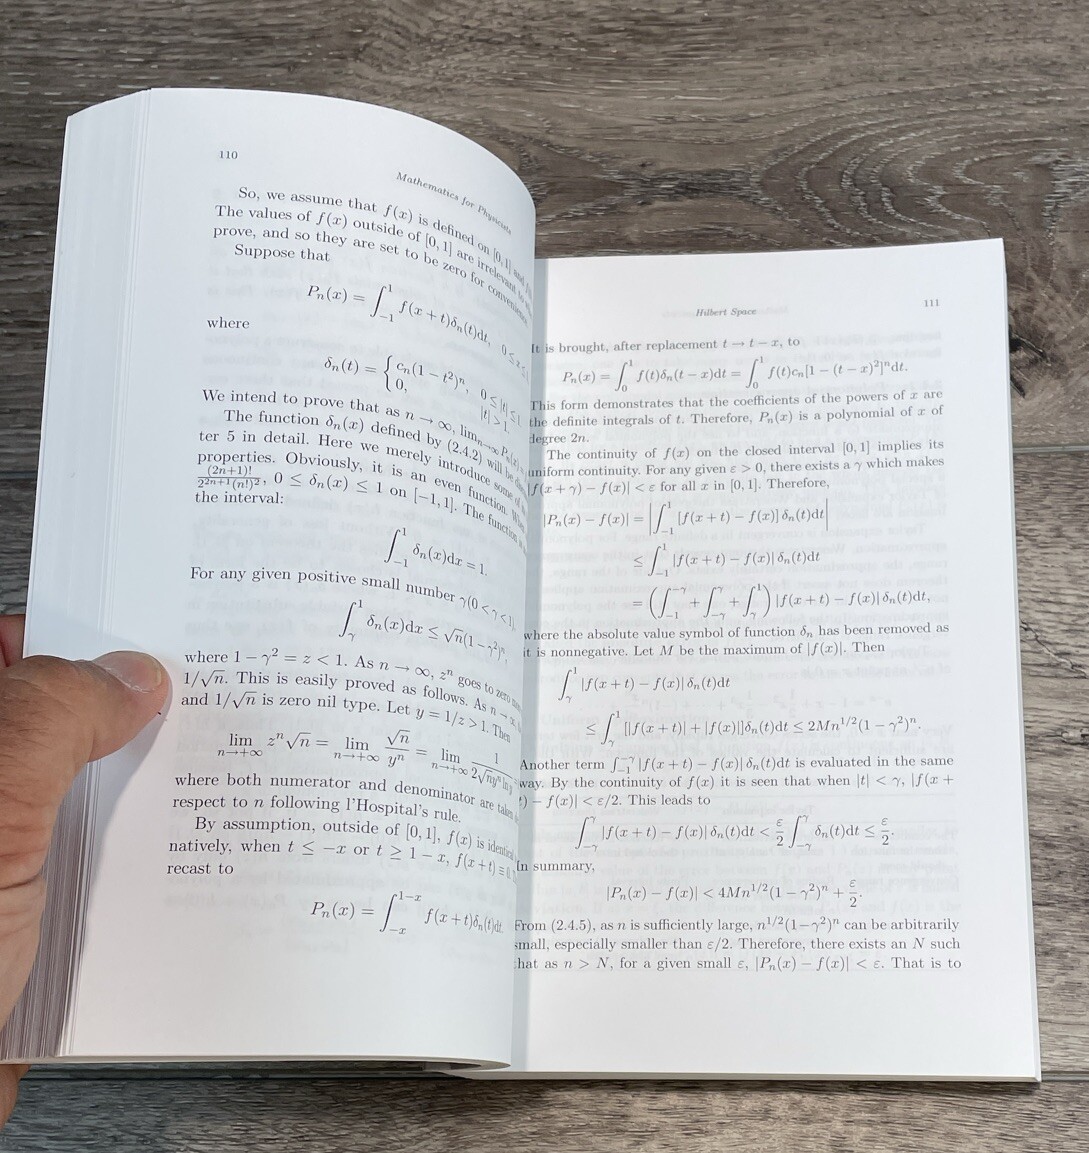 110
Mathematics for Physicists
So, we assume that f(x) is defined on [0, 1] and
The values of f(x) outside of [0, 1] are irrelevant to
prove, and so they are set to be zero for convenience
Suppose that
Pₙ(x) = ∫₋₁¹ f(x + t)δₙ(t)dt, 0 ≤ x ≤
where
δₙ(t) = { cₙ(1 − t²)ⁿ, 0 ≤ |t| ≤ 1
0, |t| > 1
We intend to prove that as n → ∞, limₙ→∞ Pₙ(x)
The function δₙ(x) defined by (2.4.2) will be
ter 5 in detail. Here we merely introduce some of
properties. Obviously, it is an even function.
(2n+1)!/2²ⁿ⁺¹(n!)², 0 ≤ δₙ(x) ≤ 1 on [−1, 1]. The function
the interval:
∫₋₁¹ δₙ(x)dx = 1.
For any given positive small number γ(0 < γ < 1),
∫ᵧ¹ δₙ(x)dx ≤ √n(1 − γ²)ⁿ,
where 1 − γ² = z < 1. As n → ∞, zⁿ goes to zero
1/√n. This is easily proved as follows. As n →
and 1/√n is zero nil type. Let y = 1/z > 1. Then
lim n→+∞ zⁿ√n = lim n→+∞ √n/yⁿ = lim n→+∞ 1/2√nyⁿ ln y
where both numerator and denominator are taken
respect to n following l'Hospital's rule.
By assumption, outside of [0, 1], f(x) is
natively, when t ≤ −x or t ≥ 1 − x, f(x + t) ≡
recast to
Pₙ(x) = ∫₋ₓ¹⁻ˣ f(x + t)δₙ(t)dt.
Hilbert Space
111
It is brought, after replacement t → t − x, to
Pₙ(x) = ∫₀¹ f(t)δₙ(t − x)dt = ∫₀¹ f(t)cₙ[1 − (t − x)²]ⁿdt.
This form demonstrates that the coefficients of the powers of x are
the definite integrals of t. Therefore, Pₙ(x) is a polynomial of x of
degree 2n.
The continuity of f(x) on the closed interval [0, 1] implies its
uniform continuity. For any given ε > 0, there exists a γ which makes
|f(x + γ) − f(x)| < ε for all x in [0, 1]. Therefore,
|Pₙ(x) − f(x)| = |∫₋₁¹ [f(x + t) − f(x)] δₙ(t)dt|
≤ ∫₋₁¹ |f(x + t) − f(x)| δₙ(t)dt
= (∫₋₁^−γ + ∫₋ᵧ^γ + ∫ᵧ¹) |f(x + t) − f(x)| δₙ(t)dt,
where the absolute value symbol of function δₙ has been removed as
it is nonnegative. Let M be the maximum of |f(x)|. Then
∫ᵧ¹ |f(x + t) − f(x)| δₙ(t)dt
≤ ∫ᵧ¹ [|f(x + t)| + |f(x)|]δₙ(t)dt ≤ 2Mn^1/2(1 − γ²)ⁿ.
Another term ∫₋₁^−γ |f(x + t) − f(x)| δₙ(t)dt is evaluated in the same
way. By the continuity of f(x) it is seen that when |t| < γ, |f(x +
t) − f(x)| < ε/2. This leads to
∫₋ᵧ^γ |f(x + t) − f(x)| δₙ(t)dt < ε/2 ∫₋ᵧ^γ δₙ(t)dt ≤ ε/2.
In summary,
|Pₙ(x) − f(x)| < 4Mn^1/2(1 − γ²)ⁿ + ε/2.
From (2.4.5), as n is sufficiently large, n^1/2(1−γ²)ⁿ can be arbitrarily
small, especially smaller than ε/2. Therefore, there exists an N such
that as n > N, for a given small ε, |Pₙ(x) − f(x)| < ε. That is to